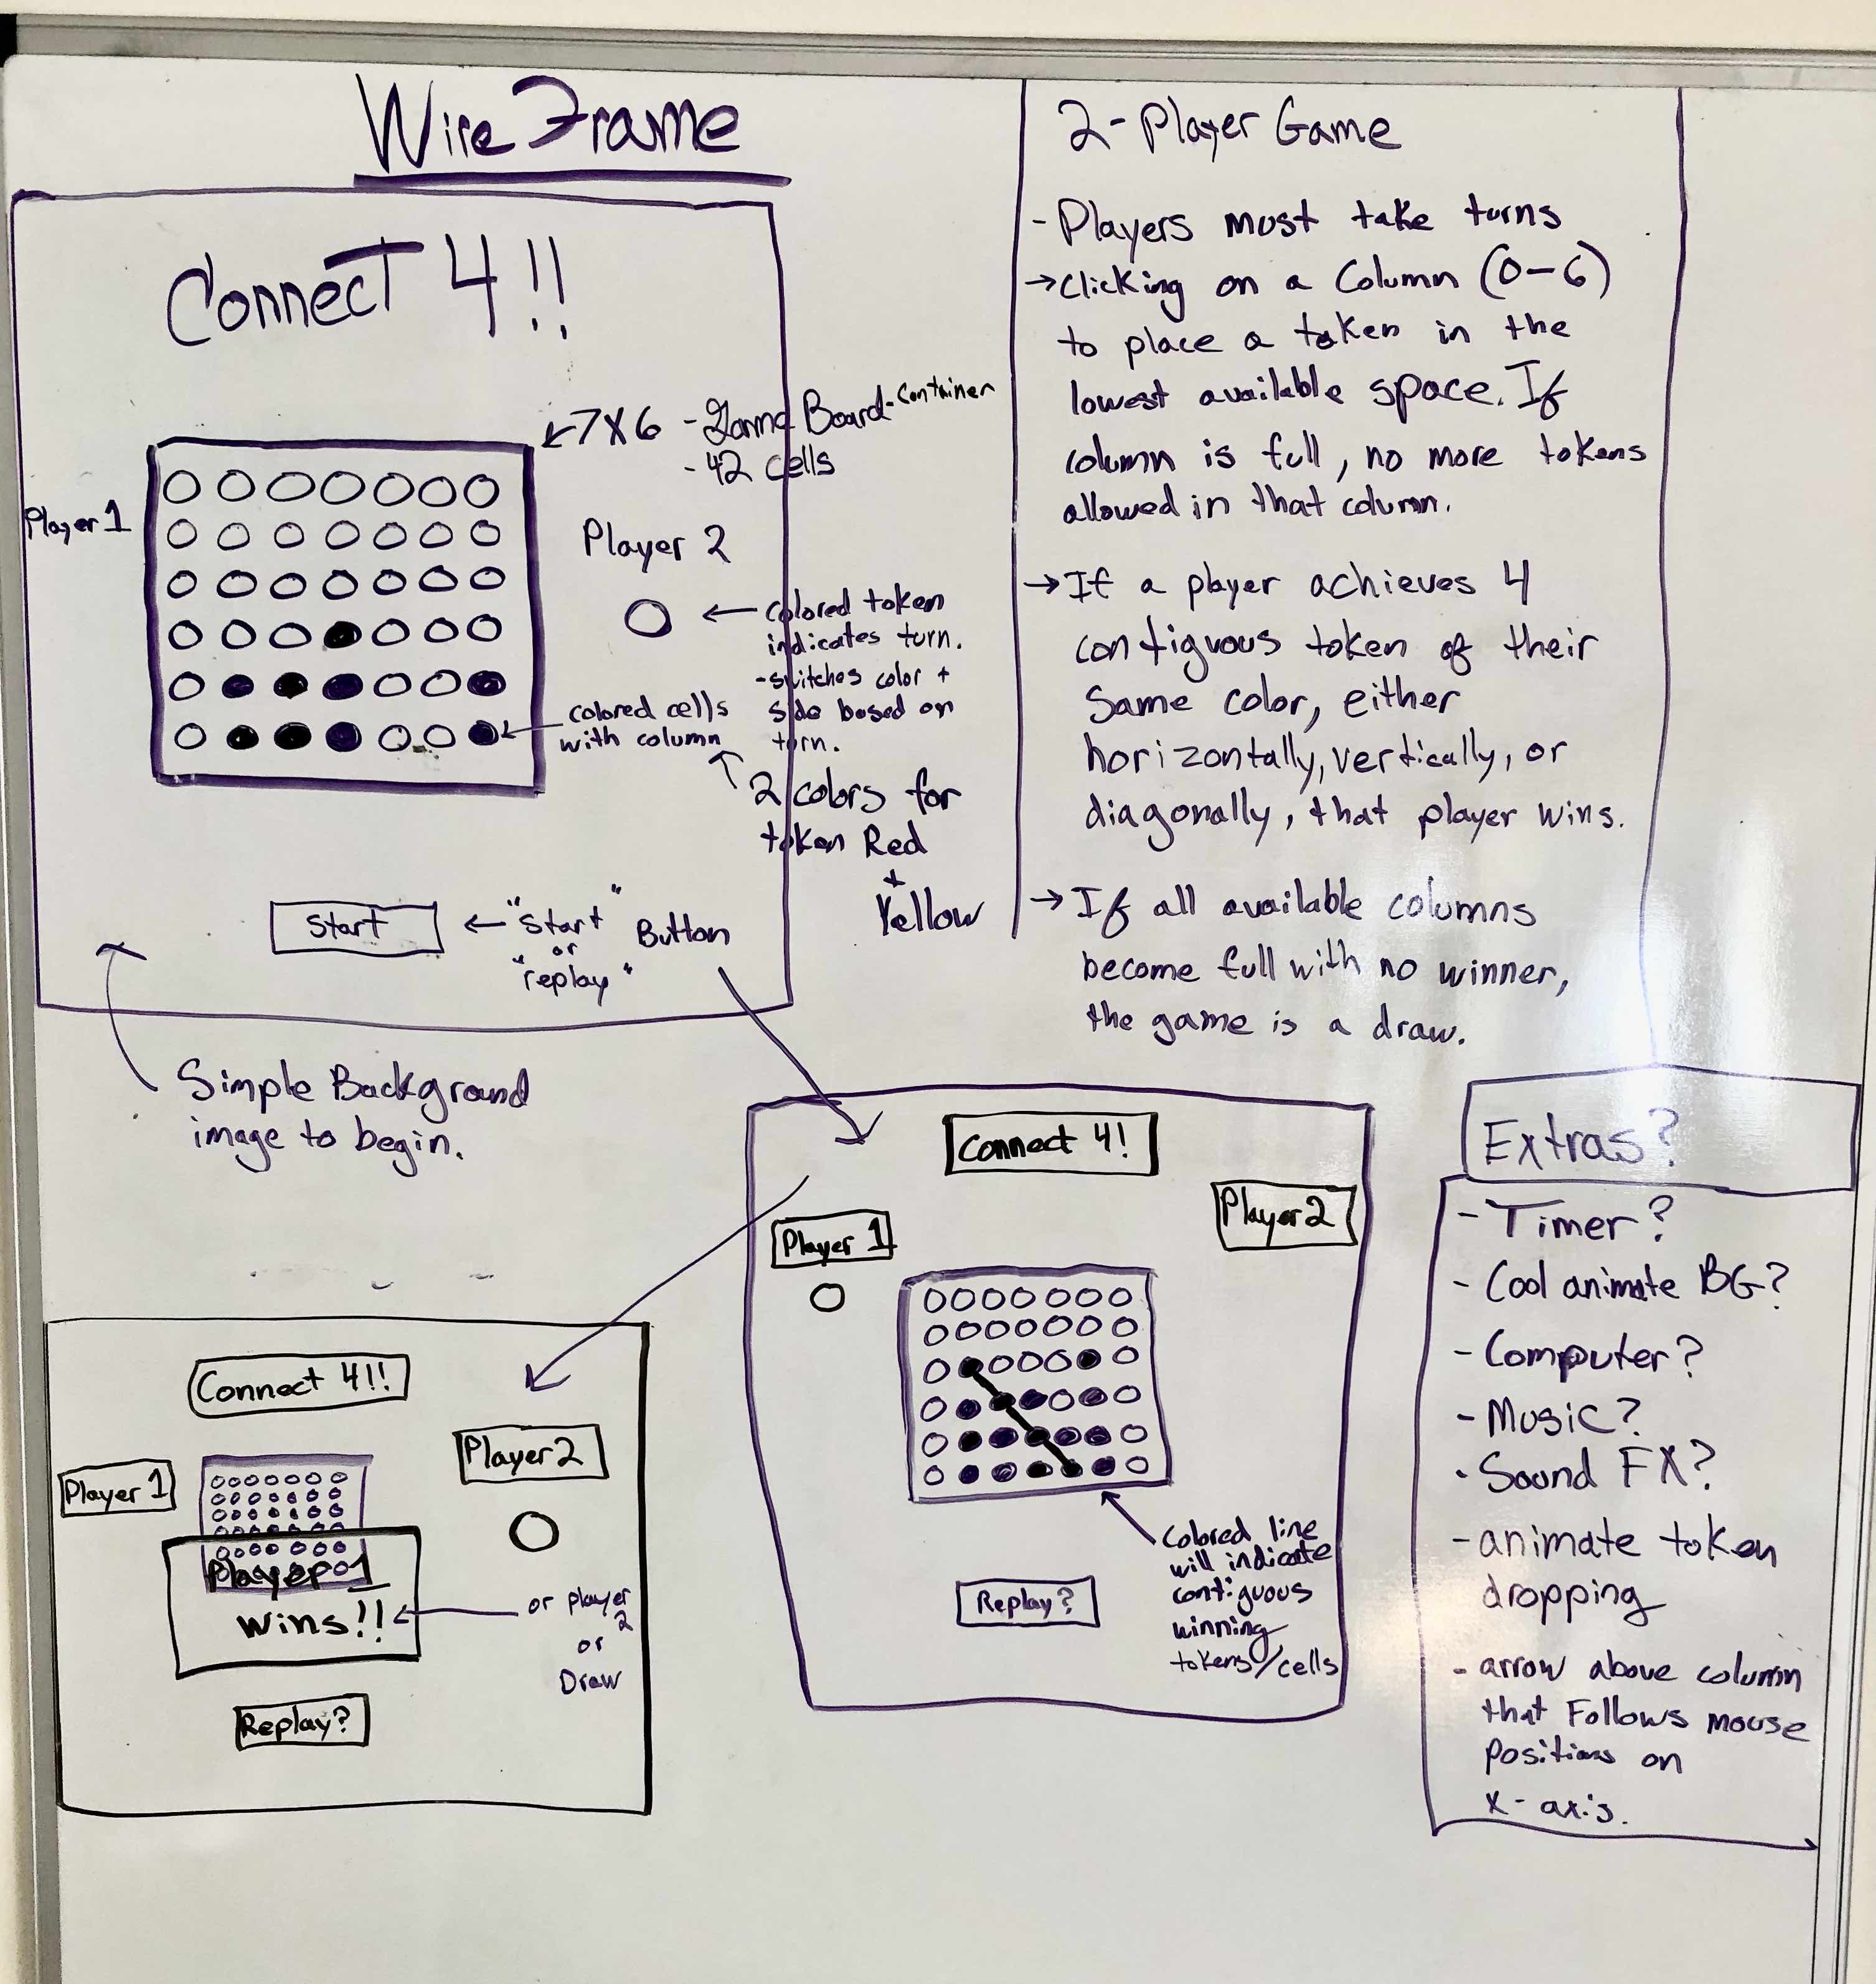 Wire Frame
Connect 4!!
7X6 - Game Board - Container
- 42 cells
Player 1
Player 2
colored token
indicates turn.
- switches color +
side based on
turn.
colored cells
with column
2 colors for
token Red
+
Yellow
Start
"Start"
or
"replay"
Button
Simple Background
image to begin.
2-Player Game
- Players must take turns
→ Clicking on a Column (0-6)
to place a token in the
lowest available space. If
column is full, no more tokens
allowed in that column.
→ If a player achieves 4
contiguous token of their
Same color, either
horizontally, vertically, or
diagonally, that player wins.
→ If all available columns
become full with no winner,
the game is a draw.
Connect 4!
Player 1
Player 2
Colored line
will indicate
contiguous
winning
tokens/cells
Replay?
Connect 4!!
Player 1
Player 2
Player 1
wins!!
or player
2
or
Draw
Replay?
Extras?
- Timer?
- Cool animate BG?
- Computer?
- Music?
- Sound FX?
- animate token
dropping
- arrow above column
that Follows mouse
positions on
x-axis.